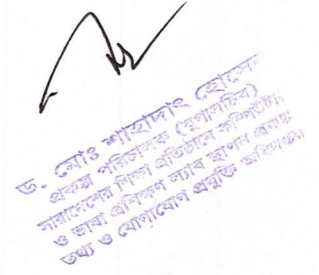 ড. মোঃ শাহাদাৎ হোসেন
প্রকল্প পরিচালক (যুগ্মসচিব)
সারাদেশের শিক্ষা প্রতিষ্ঠানে কম্পিউটার
ও ভাষা প্রশিক্ষণ ল্যাব স্থাপন প্রকল্প
তথ্য ও যোগাযোগ প্রযুক্তি অধিদপ্তর।